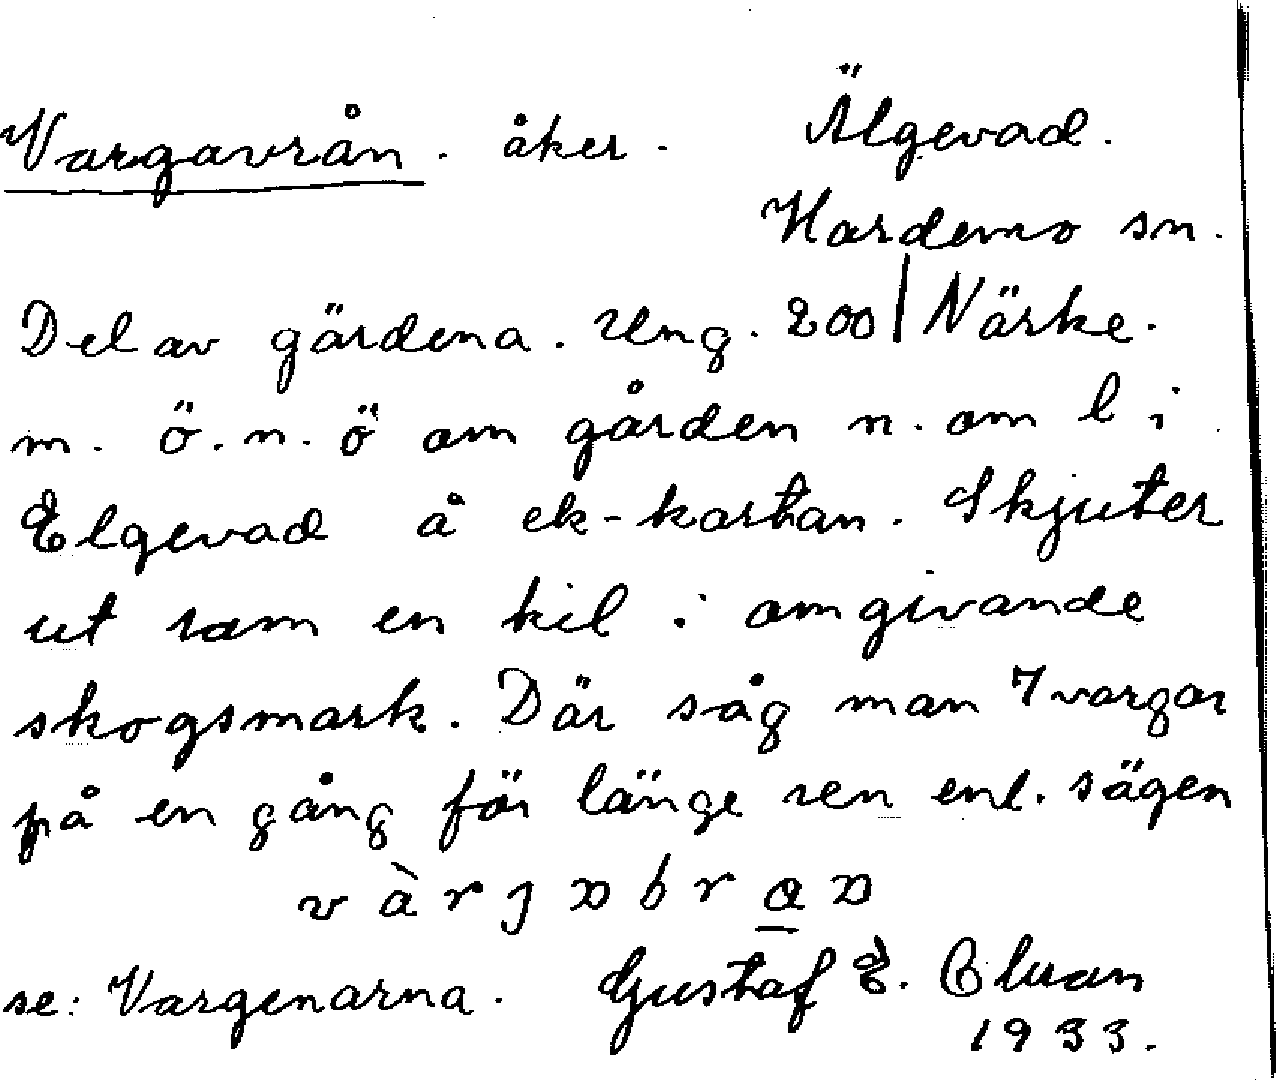 Vargavrån. åker. Älgevad.
Hardemo sn.
Del av gärdena. Ung. 200 | Närke.
m. ö.n.ö om gården n. om l i
Elgevad å ek-kartan. Skjuter
ut som en kil i omgivande
skogsmark. Där såg man 7 vargar
på en gång för länge sen enl. sägen
se: Vargenarna. Gustaf E.
1933.